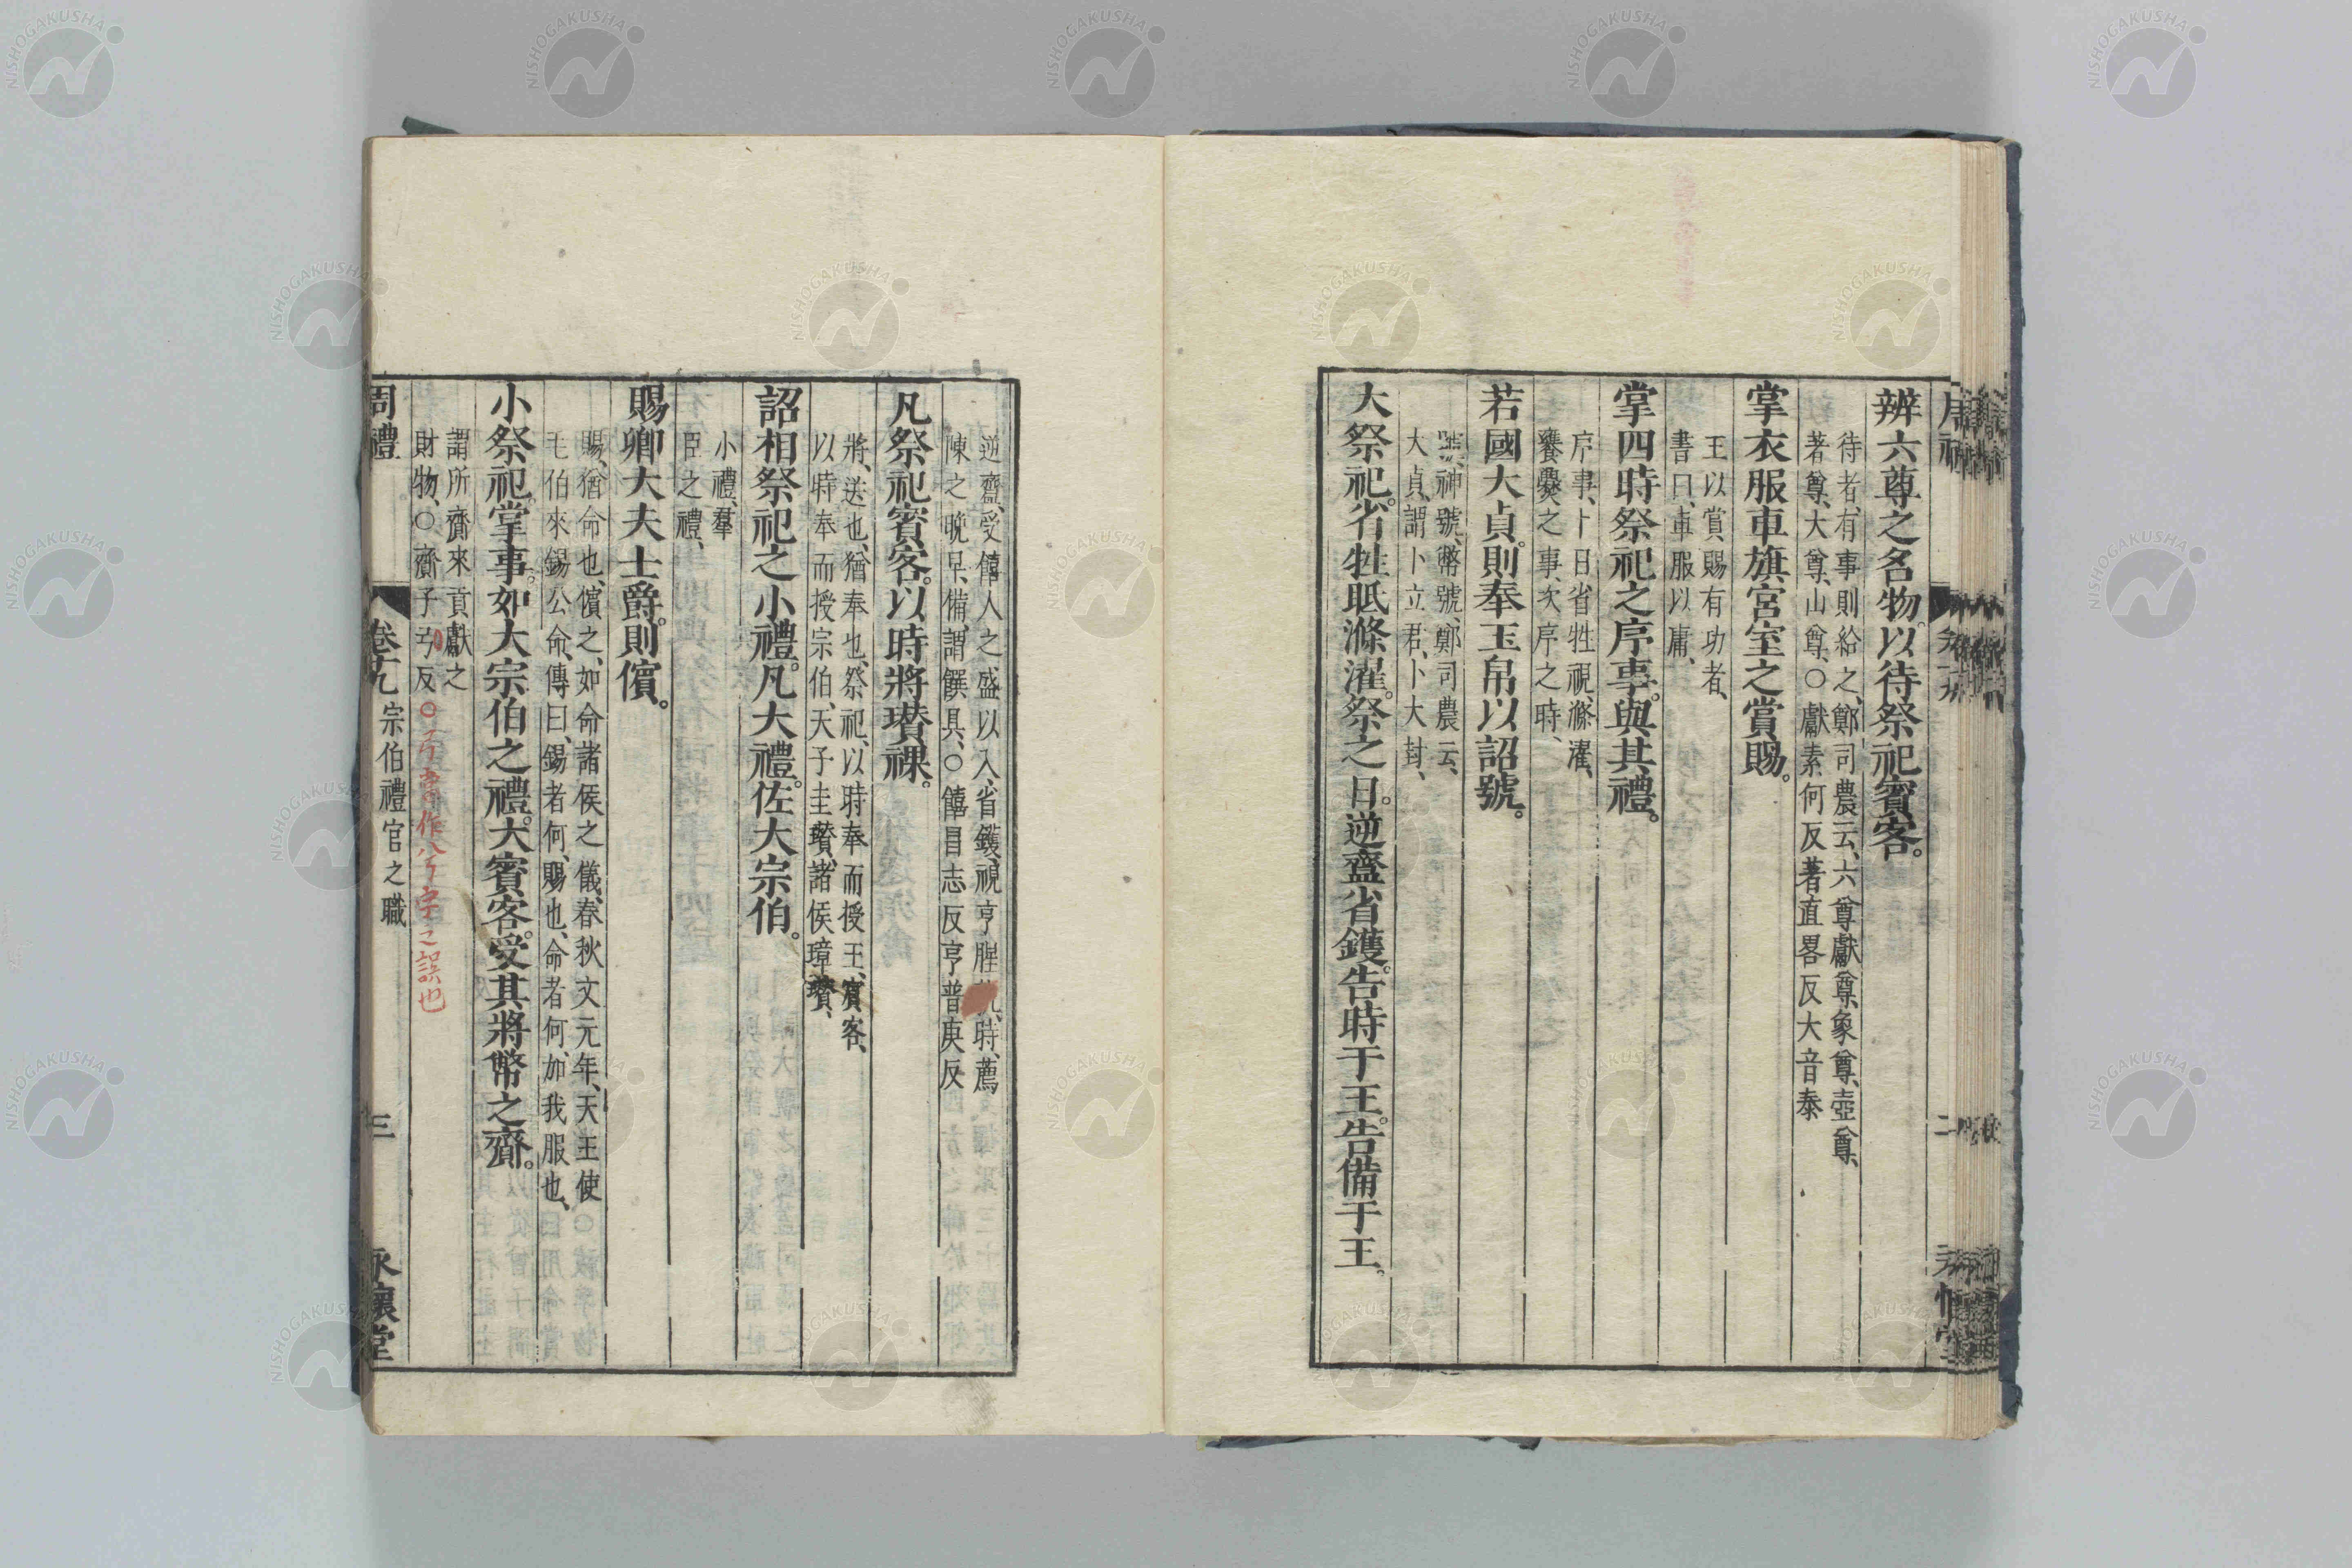 辨六尊之名物。以待祭祀賓客。
待者、有事則給之、鄭司農云、六尊、獻尊、象尊、壺尊、
著尊、大尊、山尊、○獻素何反著直畧反大音泰
掌衣服車旗宮室之賞賜。
王以賞賜有功者、
書曰、車服以庸、
掌四時祭祀之序事。與其禮。
序事、卜日省牲視滌濯、
饔爨之事、次序之時、
若國大貞。則奉玉帛以詔號。
神號、幣號、鄭司農云、
大貞、謂卜立君、卜大封、
大祭祀。省牲眡滌濯。祭之日。逆齍省鑊。告時于王。告備于王。
逆齍、受饎人之盛以入、省鑊視亨腥、時、薦
陳之晩早、備、謂饌具、○饎昌志反亨普庚反
凡祭祀賓客。以時將瓚祼。
將、送也、猶奉也、祭祀、以時奉而授王、賓客、
以時奉而授宗伯、天子圭瓚、諸侯璋瓚、
詔相祭祀之小禮。凡大禮。佐大宗伯。
小禮、羣
臣之禮、
賜卿大夫士爵。則儐。
賜、猶命也、儐之、如命諸侯之儀、春秋文元年、天王使
毛伯來錫公命、傳曰、錫者何、賜也、命者何、加我服也、
小祭祀。掌事。如大宗伯之禮。大賓客。受其將幣之齎。
謂所齎來貢獻之
財物、○齎子兮反○丂當作八丂字之誤也
周禮 卷十九 宗伯禮官之職 三 永懷堂
NISHOGAKUSHA